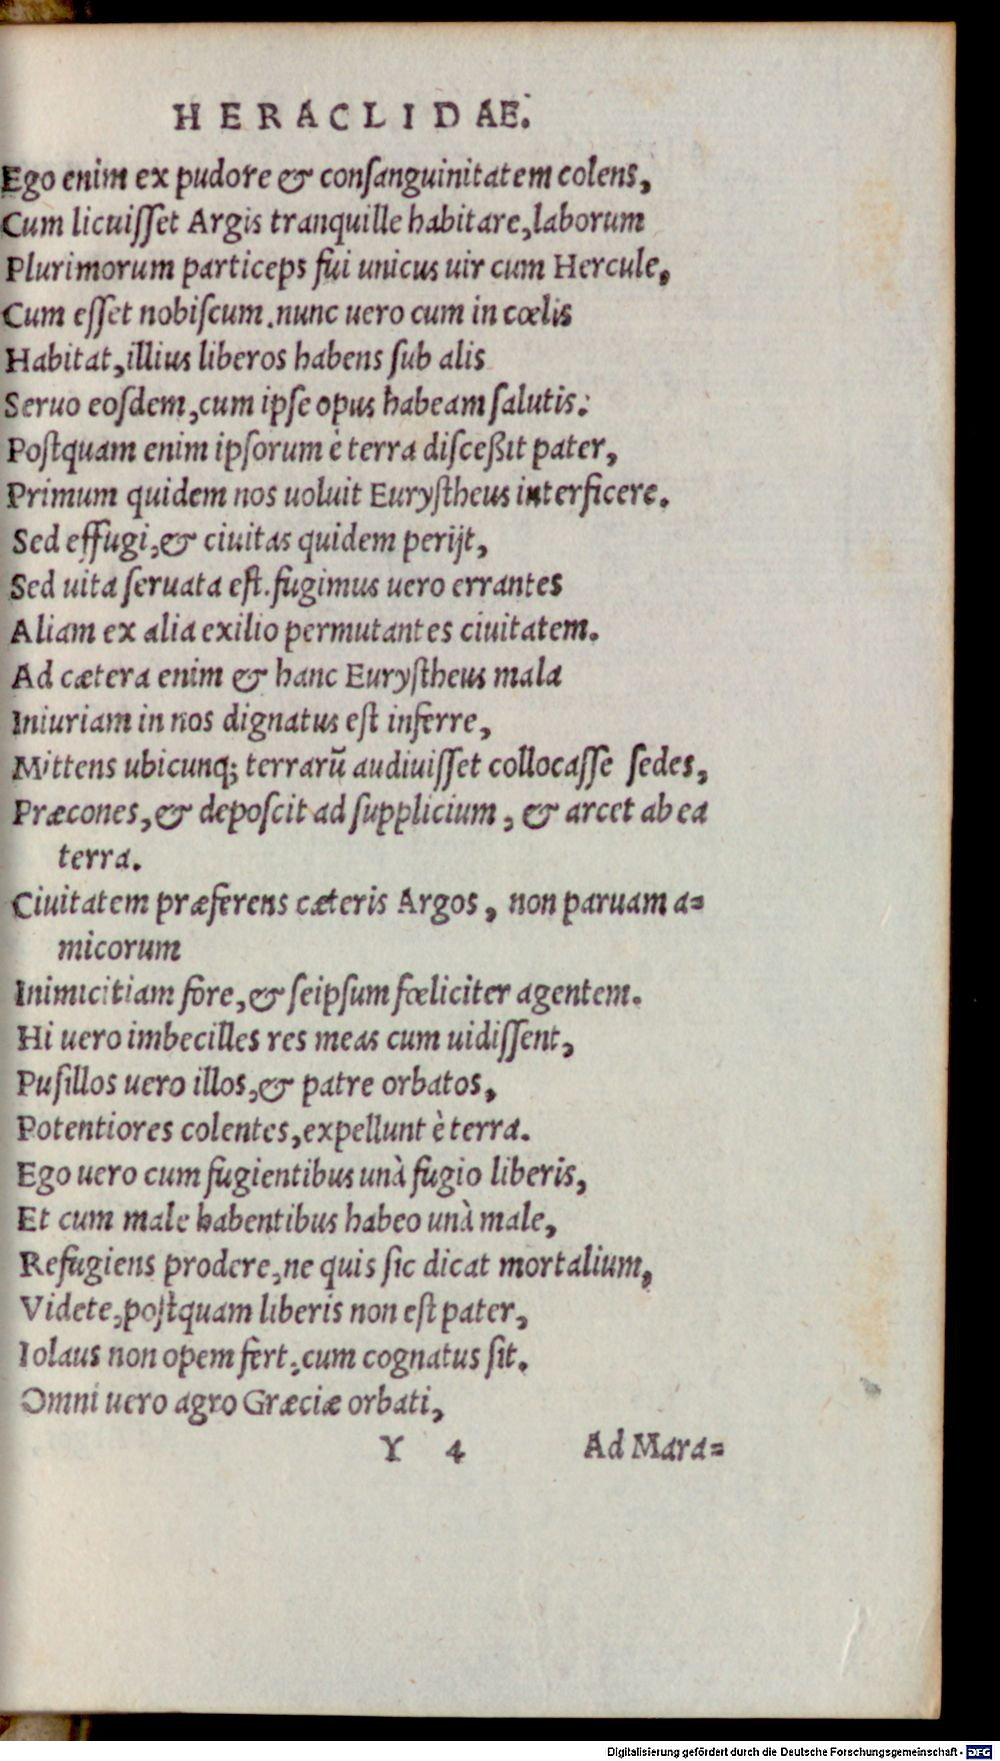 HERACLIDAE.
Ego enim ex pudore & conſanguinitatem colens,
Cum licuiſſet Argis tranquille habitare, laborum
Plurimorum particeps fui unicus uir cum Hercule,
Cum eſſet nobiſcum. nunc uero cum in cœlis
Habitat, illius liberos habens ſub alis
Seruo eoſdem, cum ipſe opus habeam ſalutis:
Poſtquam enim ipſorum è terra diſceßit pater,
Primum quidem nos uoluit Euryſtheus interficere.
Sed effugi, & ciuitas quidem perijt,
Sed uita ſeruata eſt. fugimus uero errantes
Aliam ex alia exilio permutantes ciuitatem.
Ad cætera enim & hanc Euryſtheus mala
Iniuriam in nos dignatus eſt inferre,
Mittens ubicunq; terrarū audiuiſſet collocaſſe ſedes,
Præcones, & depoſcit ad ſupplicium, & arcet ab ea
terra.
Ciuitatem præferens cæteris Argos, non paruam a=
micorum
Inimicitiam fore, & ſeipſum fœliciter agentem.
Hi uero imbecilles res meas cum uidiſſent,
Puſillos uero illos, & patre orbatos,
Potentiores colentes, expellunt è terra.
Ego uero cum fugientibus unà fugio liberis,
Et cum male habentibus habeo unà male,
Refugiens prodere, ne quis ſic dicat mortalium,
Videte, poſtquam liberis non eſt pater,
Iolaus non opem fert, cum cognatus ſit.
Omni uero agro Græciæ orbati,
Y 4 Ad Mara=
Digitalisierung gefördert durch die Deutsche Forschungsgemeinschaft - DFG